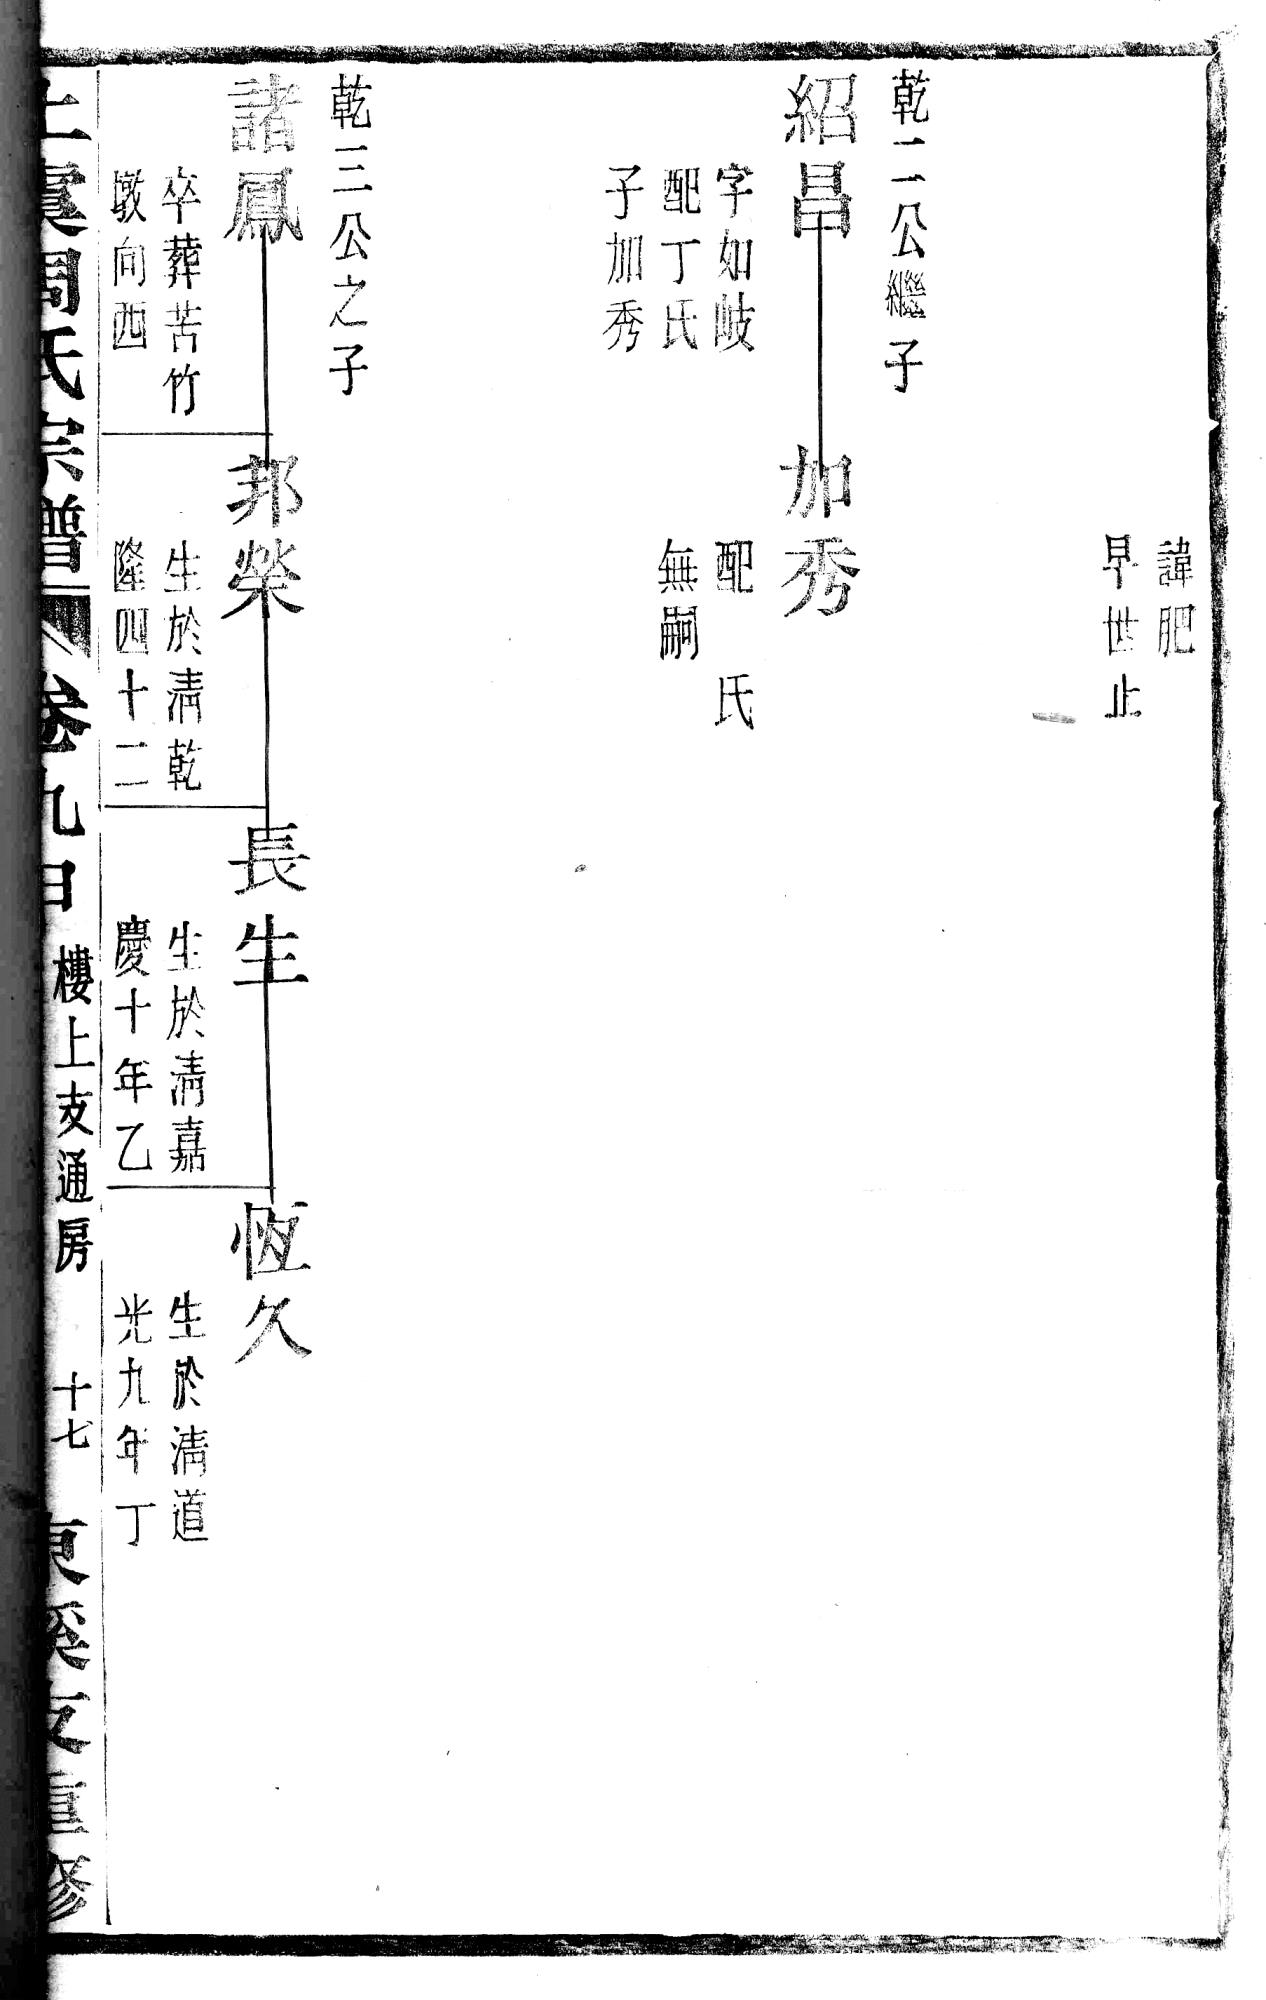 諱肥
早世止
乾二公繼子
紹昌
字如岐
配丁氏
子加秀
加秀
配　氏
無嗣
乾三公之子
諸鳳
卒葬苦竹
墩向西
邦榮
生於淸乾
隆四十二
長生
生於淸嘉
慶十年乙
恆久
生於淸道
光九年丁
上虞周氏宗譜
卷九
樓上支通房
十七
東溪支重修